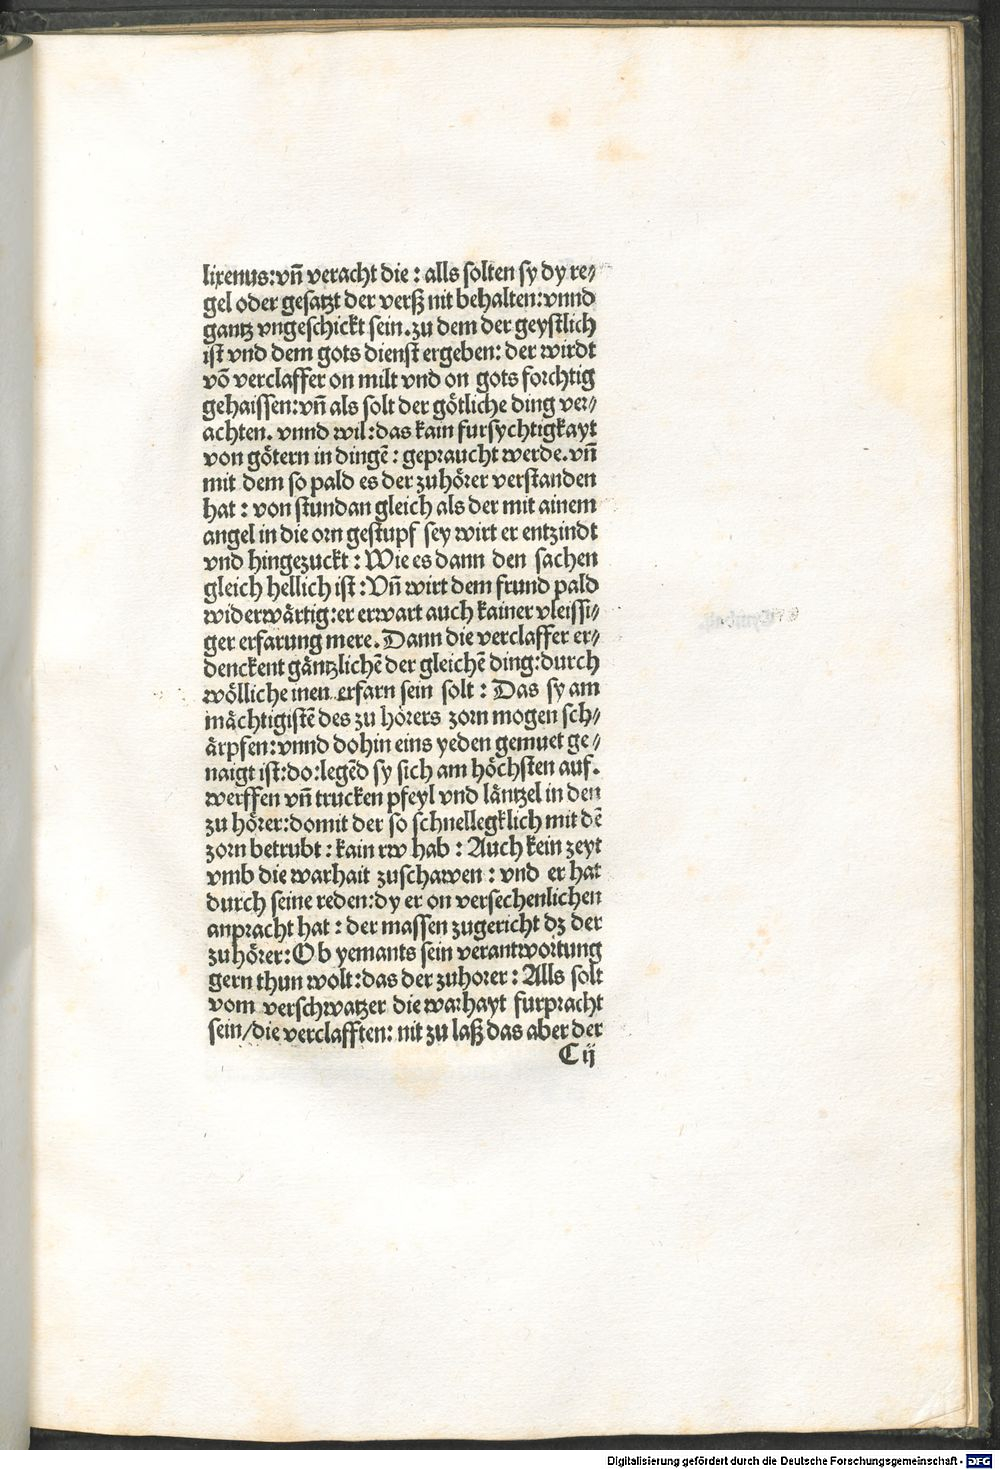 lixenus:vn̄ veracht die : alls solten sy dy re⸗
gel oder gesatzt der verß nit behalten:vnnd
gantz vngeschickt sein.zu dem der geystlich
ist vnd dem gots dienst ergeben: der wirdt
vō verclaffer on milt vnd on gots forchtig
gehaissen:vn̄ als solt der götliche ding ver⸗
achten. vnnd wil:das kain fursychtigkayt
von götern in dingē : gepraucht werde.vn̄
mit dem so pald es der zuhörer verstanden
hat : von stundan gleich als der mit ainem
angel in die orn gestupf sey wirt er entzindt
vnd hingezuckt : Wie es dann den sachen
gleich hellich ist : Vn̄ wirt dem frund pald
widerwärtig:er erwart auch kainer vleissi⸗
ger erfarung mere. Dann die verclaffer er⸗
denckent gäntzlichē der gleichē ding:durch
wölliche inen erfarn sein solt : Das sy am
mächtigistē des zu hörers zorn mogen sch⸗
ärpfen:vnnd dohin eins yeden gemuet ge⸗
naigt ist:do:legēd sy sich am höchsten auf.
werffen vn̄ trucken pfeyl vnd läntzel in den
zu hörer:domit der so schnellegklich mit dē
zorn betrubt : kain rw hab : Auch kein zeyt
vmb die warhait zuschawen : vnd er hat
durch seine reden:dy er on versechenlichen
anpracht hat : der massen zugericht dz der
zuhörer: Ob yemants sein verantwortung
gern thun wolt:das der zuhorer : Alls solt
vom verschwatzer die warhayt furpracht
sein/die verclafften: nit zu laß das aber der
C ij
Digitalisierung gefördert durch die Deutsche Forschungsgemeinschaft - DFG